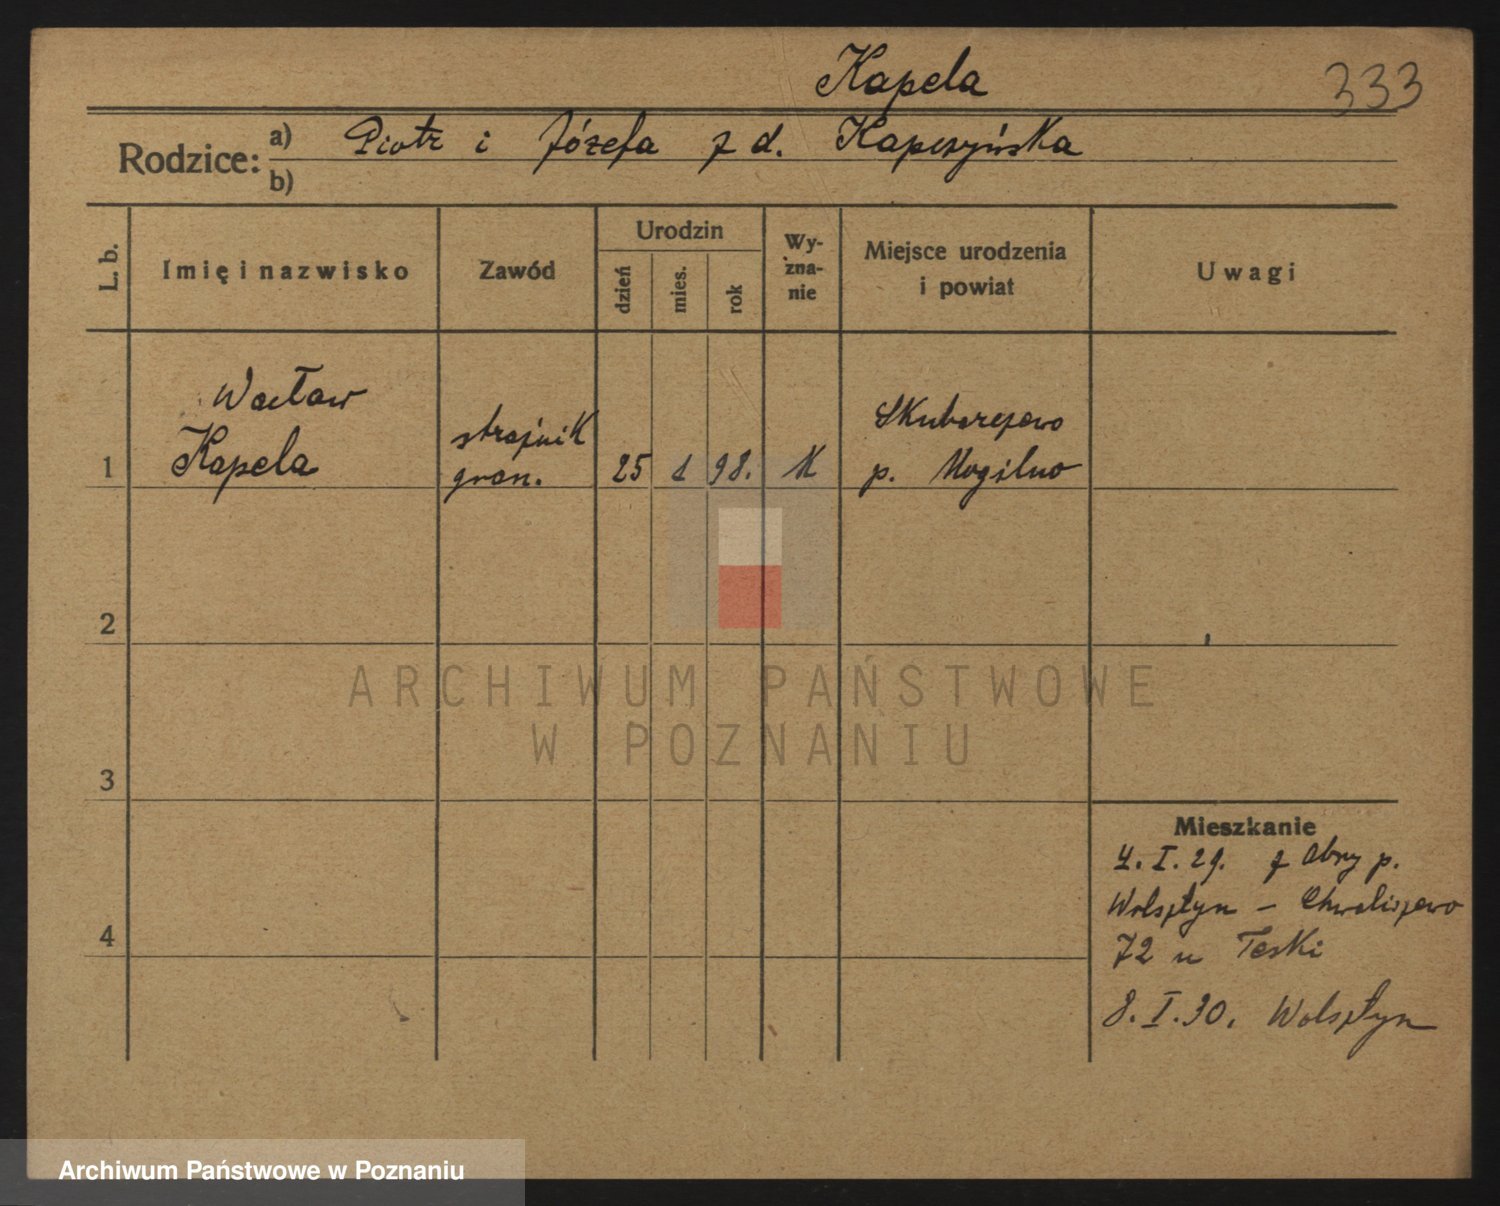 Kapela 333
Rodzice: a) Piotr i Józefa z d. Kapczyńska
b)
L. b. Imię i nazwisko Zawód Urodzin dzień mies. rok Wy-zna-nie Miejsce urodzenia i powiat Uwagi
Wacław
Kapela
strażnik
gran.
1 25 1 98. K
Skubarczewo
p. Mogilno
2
3
4
Mieszkanie
4. I. 29. z Obry p.
Wolsztyn - Chwaliszewo
72 u Teski
8. I. 30. Wolsztyn
ARCHIWUM PAŃSTWOWE
W POZNANIU
Archiwum Państwowe w Poznaniu